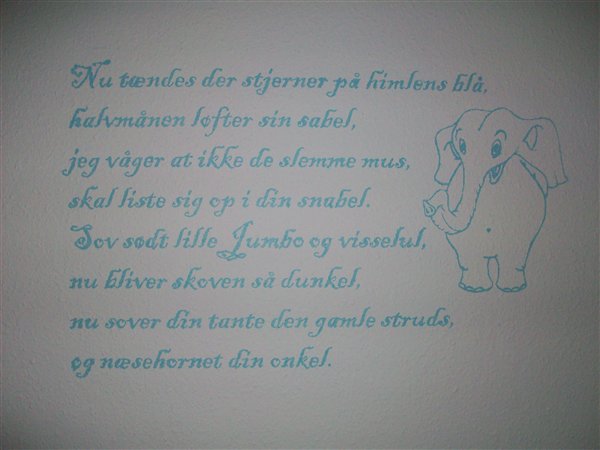 Nu tændes der stjerner på himlens blå,
halvmånen løfter sin sabel,
jeg våger at ikke de slemme mus,
skal liste sig op i din snabel.
Sov sødt lille Jumbo og visselul,
nu bliver skoven så dunkel,
nu sover din tante den gamle struds,
og næsehornet din onkel.